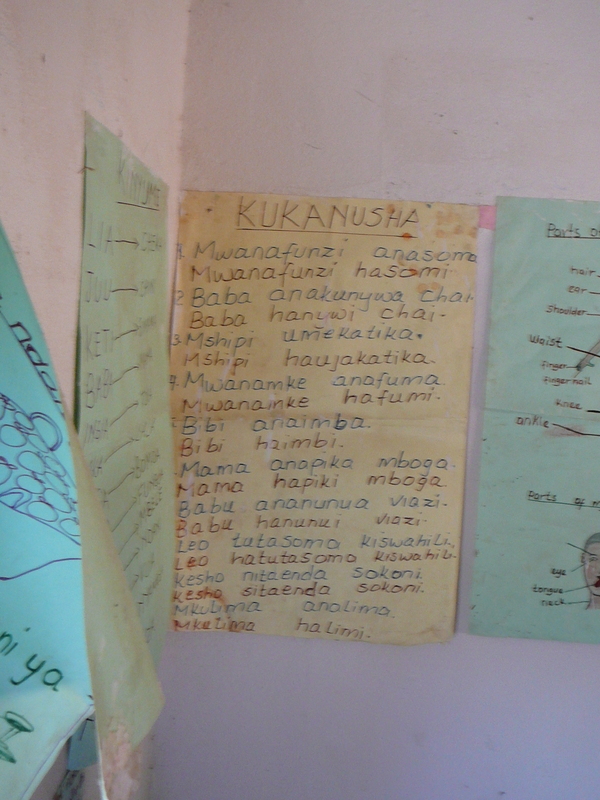 KUKANUSHA
1. Mwanafunzi anasoma
Mwanafunzi hasomi.
2. Baba anakunywa chai.
Baba hanywi chai.
3. Mshipi umekatika.
Mshipi haujakatika.
4. Mwanamke anafuma.
Mwanamke hafumi.
Bibi anaimba.
Bibi haimbi.
Mama anapika mboga.
Mama hapiki mboga.
Babu ananunua viazi.
Babu hanunui viazi.
Leo tutasoma kiswahili.
Leo hatutasoma kiswahili.
Kesho nitaenda sokoni.
Kesho sitaenda sokoni.
Mkulima analima.
Mkulima halimi.
LIA
JUU
KETI
ni ya
Parts
hair
ear
shoulder
Waist
finger
fingernail
knee
ankle
Parts of
eye
tongue
neck